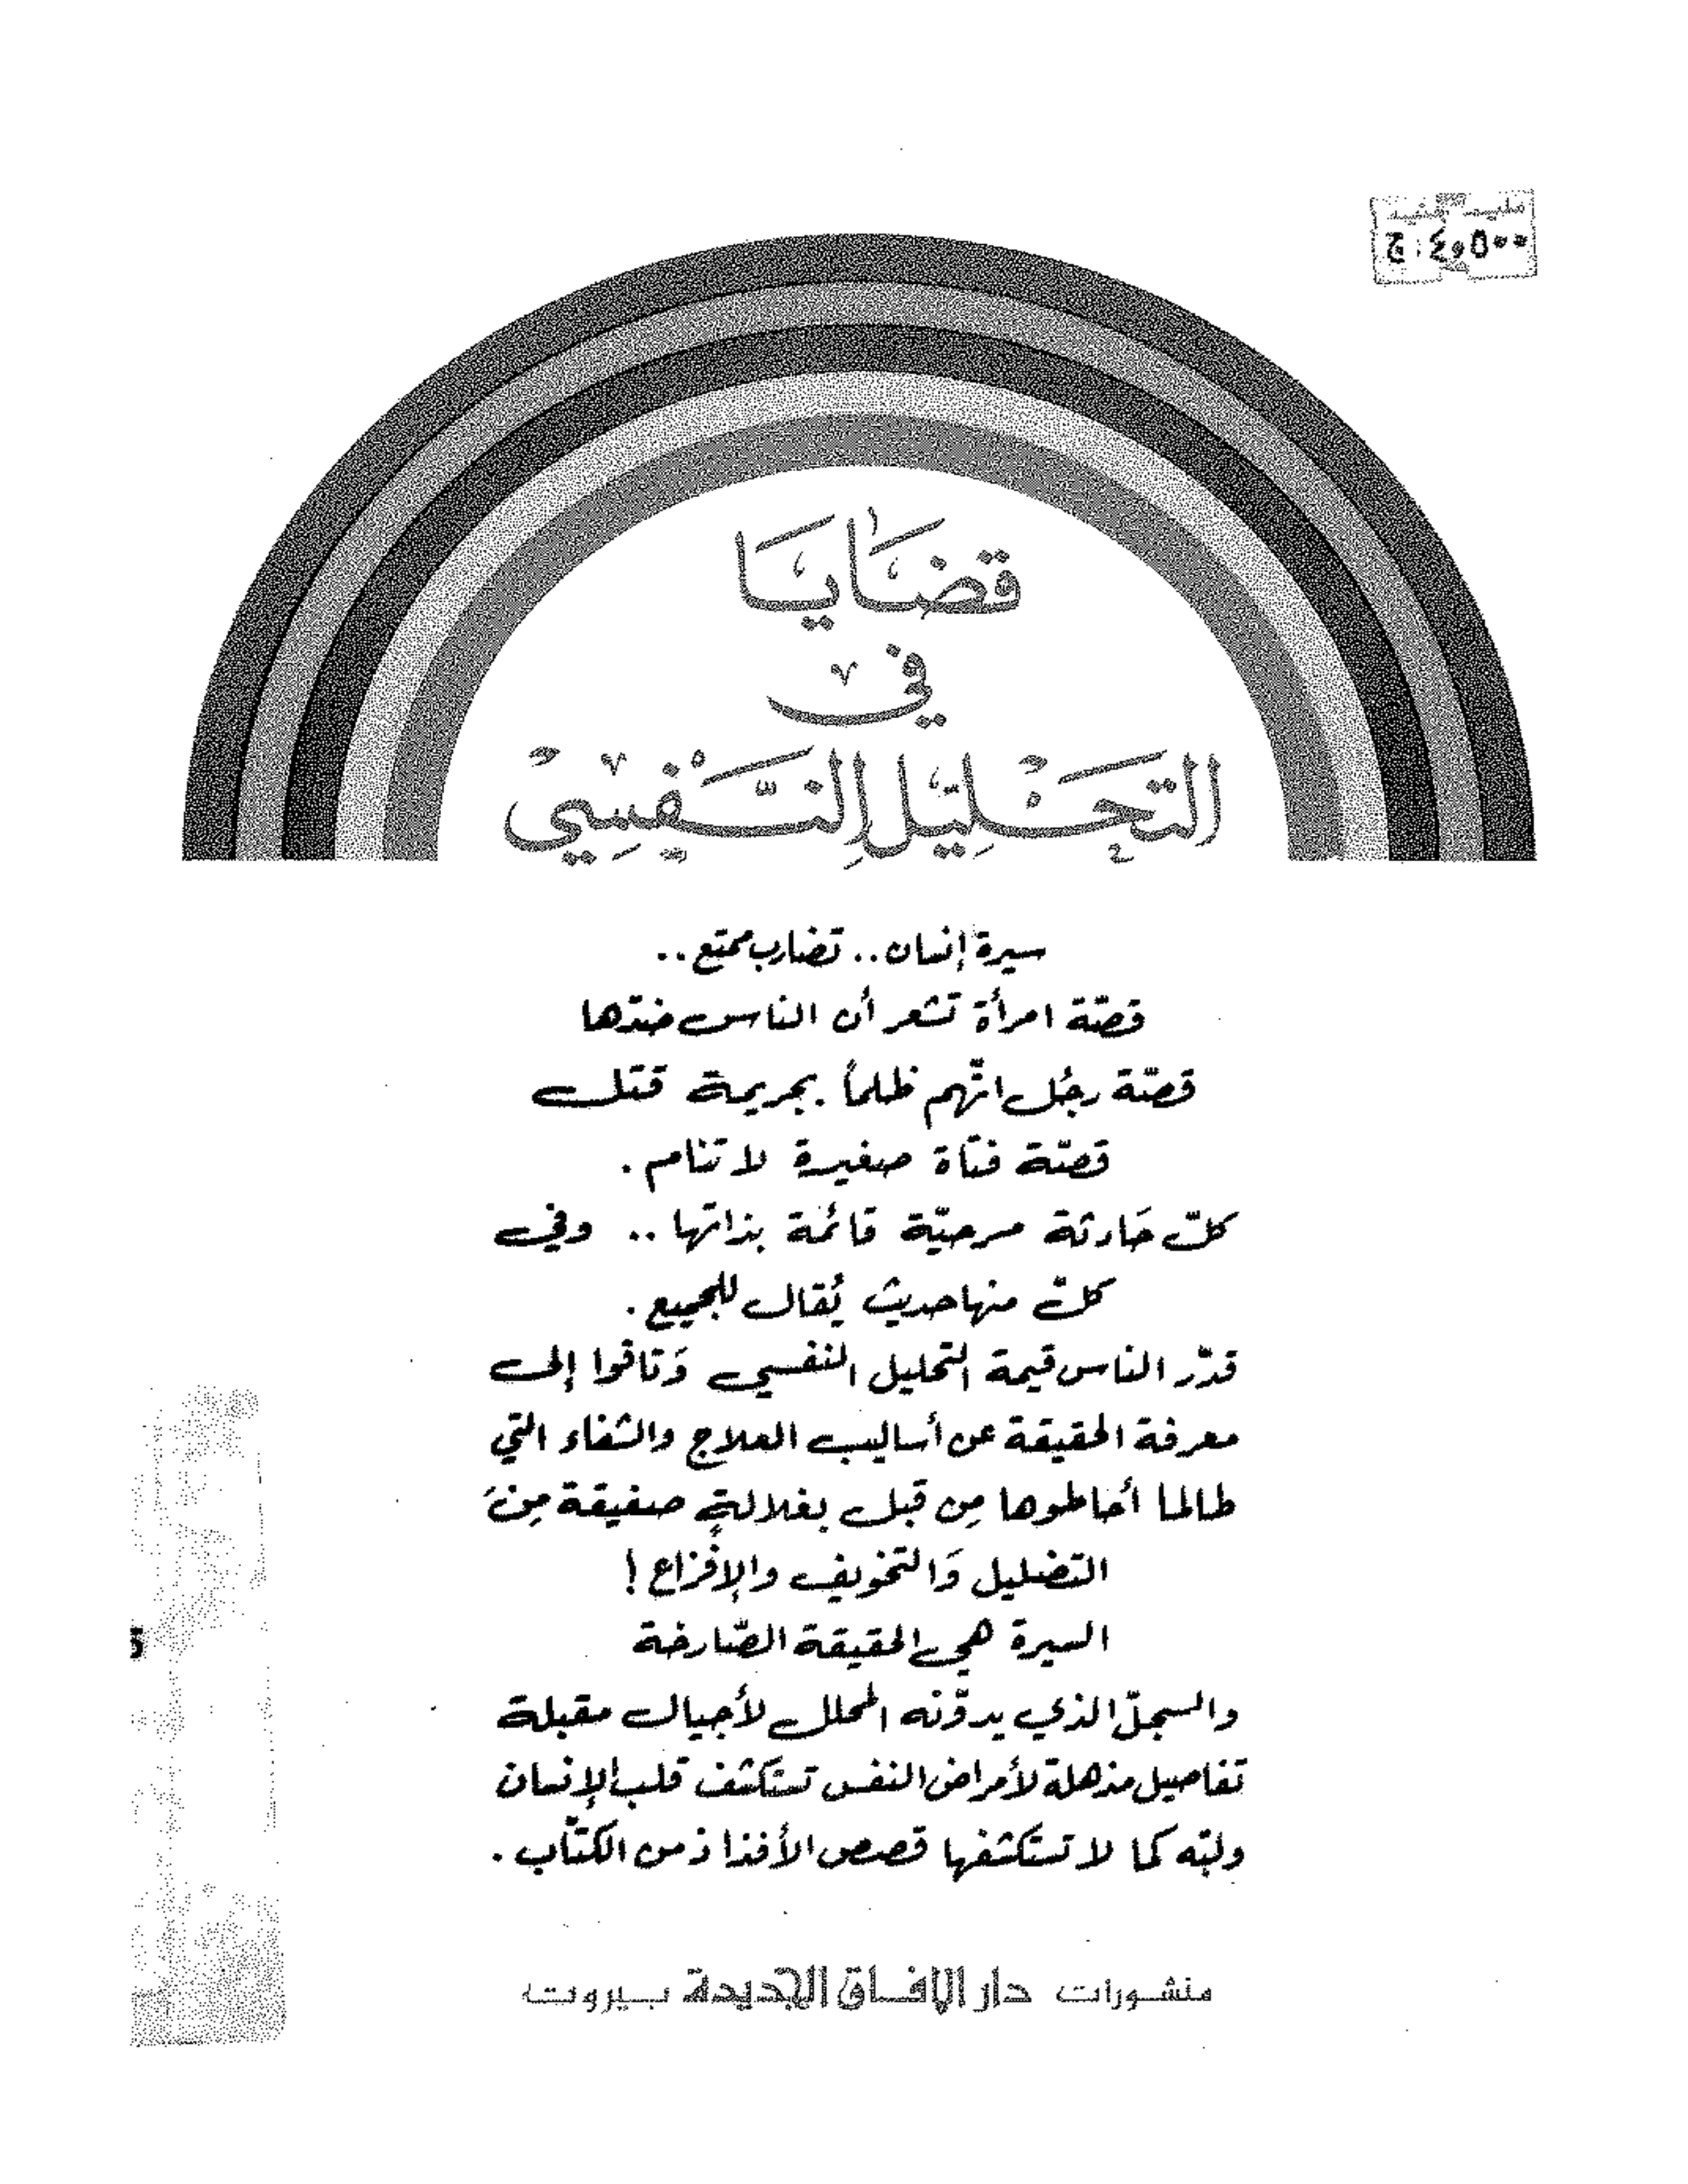 مليم جنيه
٤٫٥٠٠ ج
قضَايَا
في
التحَـْليَل النـَّفسِيي
سيرة إنسان .. تضارب ممتع ..
قصّة امرأة تشعر أن الناس ضدّها
قصّة رجُل اتّهم ظلماً بجريمة قتل
قصّة فتاة صغيرة لا تنام .
كلّ حَادثة مسرحيّة قائمة بذاتها .. وفي
كلّ منها حديث يُقال للجميع .
قدّر الناس قيمة التحليل النفسي وَتاقوا إلى
معرفة الحقيقة عن أساليب العلاج والشفاء التي
طالما أحاطوها مِن قبل بغلالةٍ صفيقة مِنَ
التضليل وَالتخويف والإفزاع !
السيرة هي الحقيقة الصّارخة
والسجلّ الذي يدوّنه المحلل لأجيال مقبلة
تفاصيل مذهلة لأمراض النفس تستكشف قلب الإنسان
ولبّه كما لا تستكشفها قصص الأفذاذ من الكتّاب .
منشورات دار الآفاق الجديدة بيروت